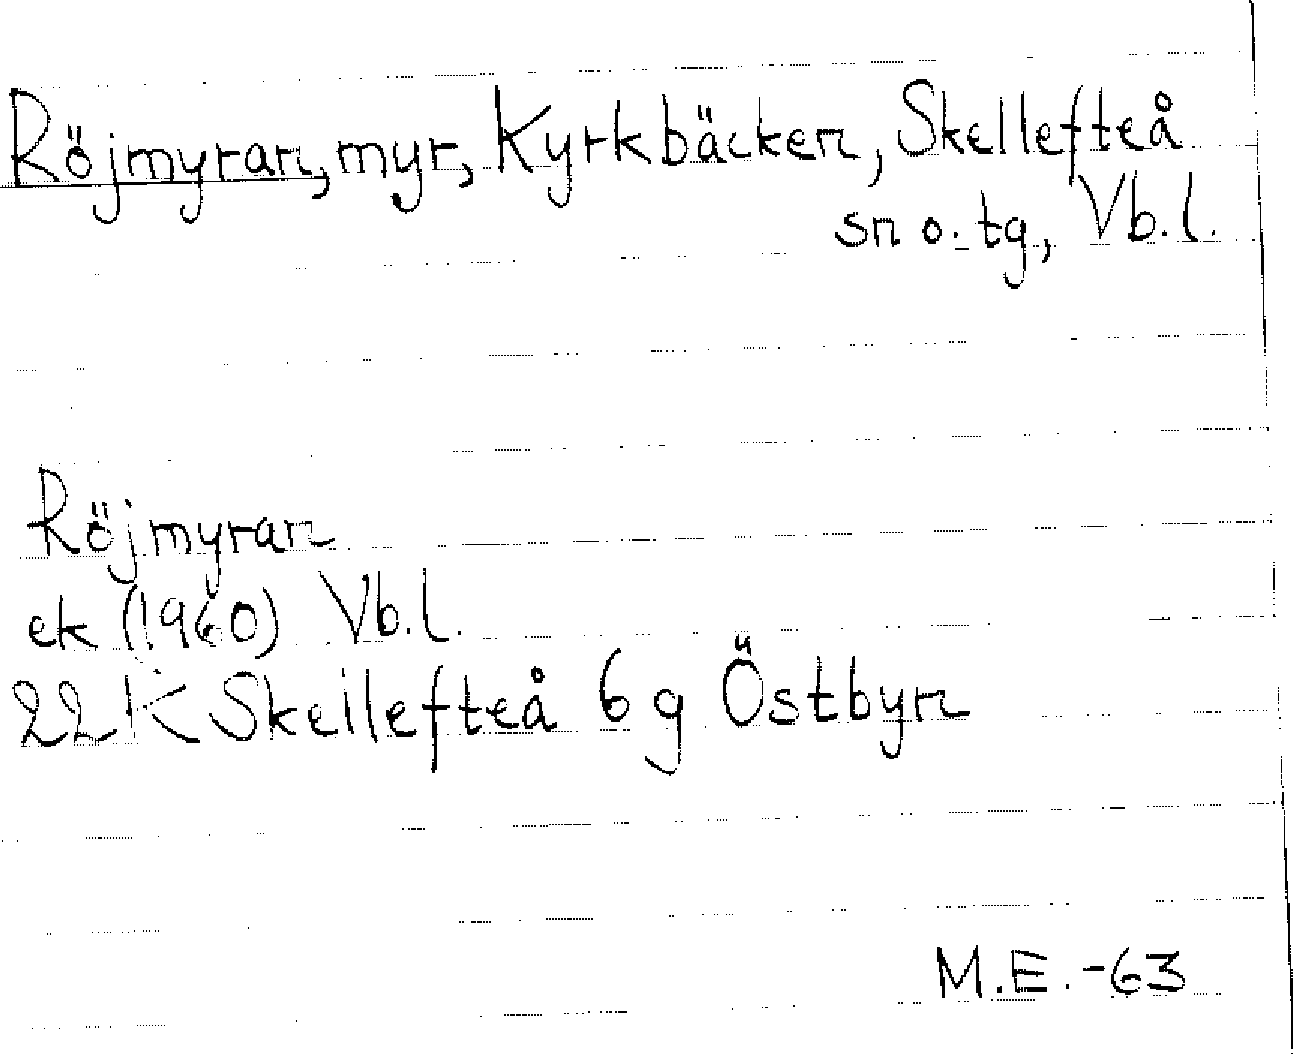 Röjmyran, myr, Kyrkbäcken, Skellefteå
sn o. tg, Vb.l.
Röjmyran
ek (1960) Vb.l.
22 K Skellefteå 6 g Östbyn
M.E.-63